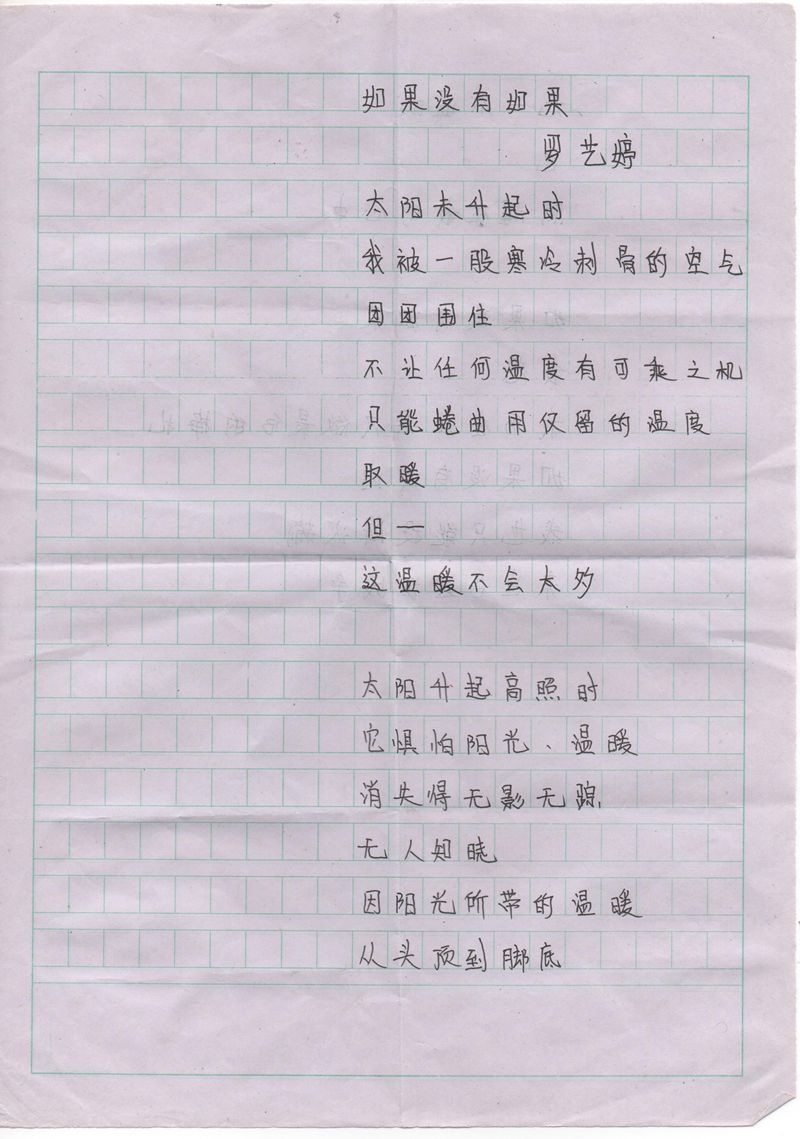 如果没有如果
罗艺婷
太阳未升起时
我被一股寒冷刺骨的空气
团团围住
不让任何温度有可乘之机
只能蜷曲用仅留的温度
取暖
但——
这温暖不会太多
太阳升起高照时
它惧怕阳光、温暖
消失得无影无踪
无人知晓
因阳光所带的温暖
从头顶到脚底